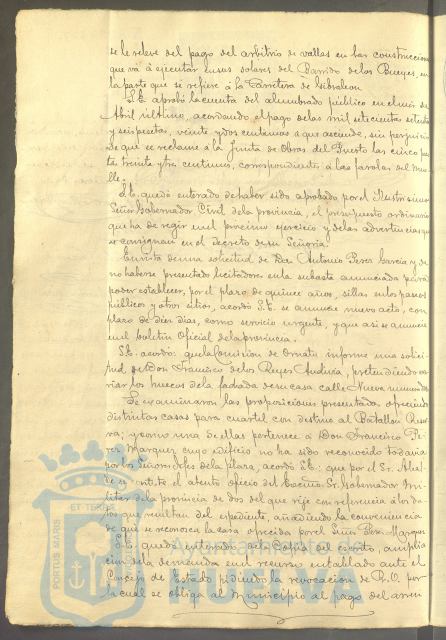 se le releve del pago del arbitrio de vallas en las construcciones
que vá á ejecutar en sus solares del Barrido de los Bueyes, en
la parte que se refiere á la Carretera de Gibraleon.
S.E. aprobó la cuenta del alumbrado público en el mes de
Abril último, acordando el pago de las mil setecientas setenta
y seis pesetas, veinte y dos centimos a que asciende, sin perjuicio
de que se reclame á la Junta de Obras del Puerto las cinco pese
tas treinta y tres centimos, correspondientes á las farolas del mue
lle.
S.E. quedó enterado de haber sido aprobado por el Ilustrisimo
Señor Gobernador Civil de la provincia, el presupuesto ordinario
que ha de regir en el proximo ejercicio y de las advertencias que
se consignan en el decreto de su Señoria.
En vista de una solicitud de Don Antonio Perez Garcia y de
no haberse presentado licitadores en la subasta anunciada para
poder establecer, por el plazo de quince años, sillas en los paseos
públicos y otros sitios, acordó S.E. se anuncie nuevo acto, con
plazo de diez dias, como servicio urgente, y que asi se anuncie
en el boletin Oficial de la provincia.
S.E. acordó: que la Comision de Ornato informe una solici
tud de Don Francisco de los Reyes pretendiendo va
riar los huecos de la fachada de su casa calle Nueva numero
Se examinaron las proposiciones presentadas ofreciendo
distintas casas para cuartel con destino al Batallon Reser
va; y como una de ellas pertenece a Don Francisco Pe
rez Marquez cuyo edificio no ha sido reconocido todavia
por los Señores Jefes de la plaza, acordó S.E.: que por el Sr. Alcal
de se conteste el atento oficio del Excmo. Sr. Gobernador Mi
litar de la provincia de dos del que rije con referencia á los da
tos que resultan del espediente, añadiendo la conveniencia
de que se reconozca la casa ofrecida por el Señor Perez Marquez
S.E. quedó enterado de la copia del escrito, amplia
cion de la demanda en el recurso entablado ante el
Consejo de Estado pidiendo la revocacion de R.O. por
la cual se obliga al Municipio al pago del arren
PORTUS MARIS
ET TERRAE
Ayuntamiento
HUELVA